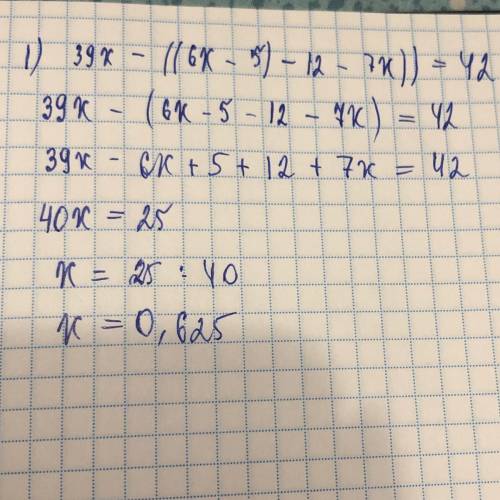 1) 39x - ((6x - 5) - 12 - 7x)) = 42
39x - (6x - 5 - 12 - 7x) = 42
39x - 6x + 5 + 12 + 7x = 42
40x = 25
x = 25 : 40
x = 0,625